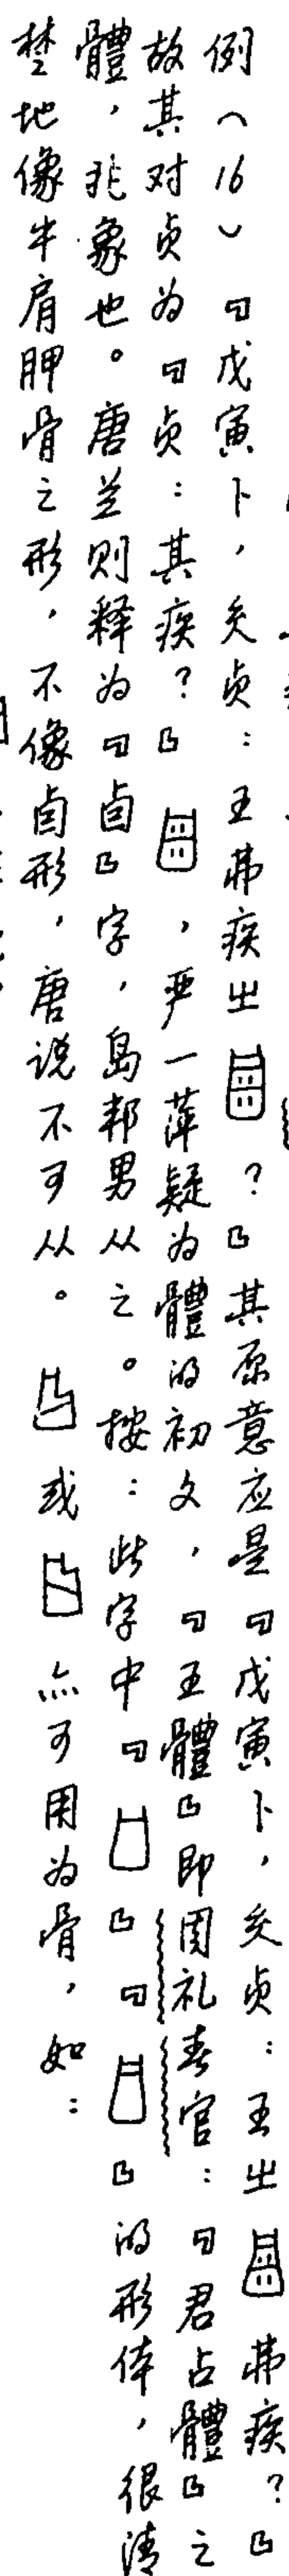 例(16)「戊寅卜，㱿贞：王弗疾㞢？」其原意应是「戊寅卜，㱿贞：王㞢弗疾？」
故其对贞为「贞：其疾？」，严一萍疑为體的初文，「王體」即周礼春官：「君占體」之
體，兆象也。唐兰则释为「卣」字，岛邦男从之。按：此字中「」「」的形体，很清
楚地像牛肩胛骨之形，不像卣形，唐说不可从。或亦可用为骨，如：